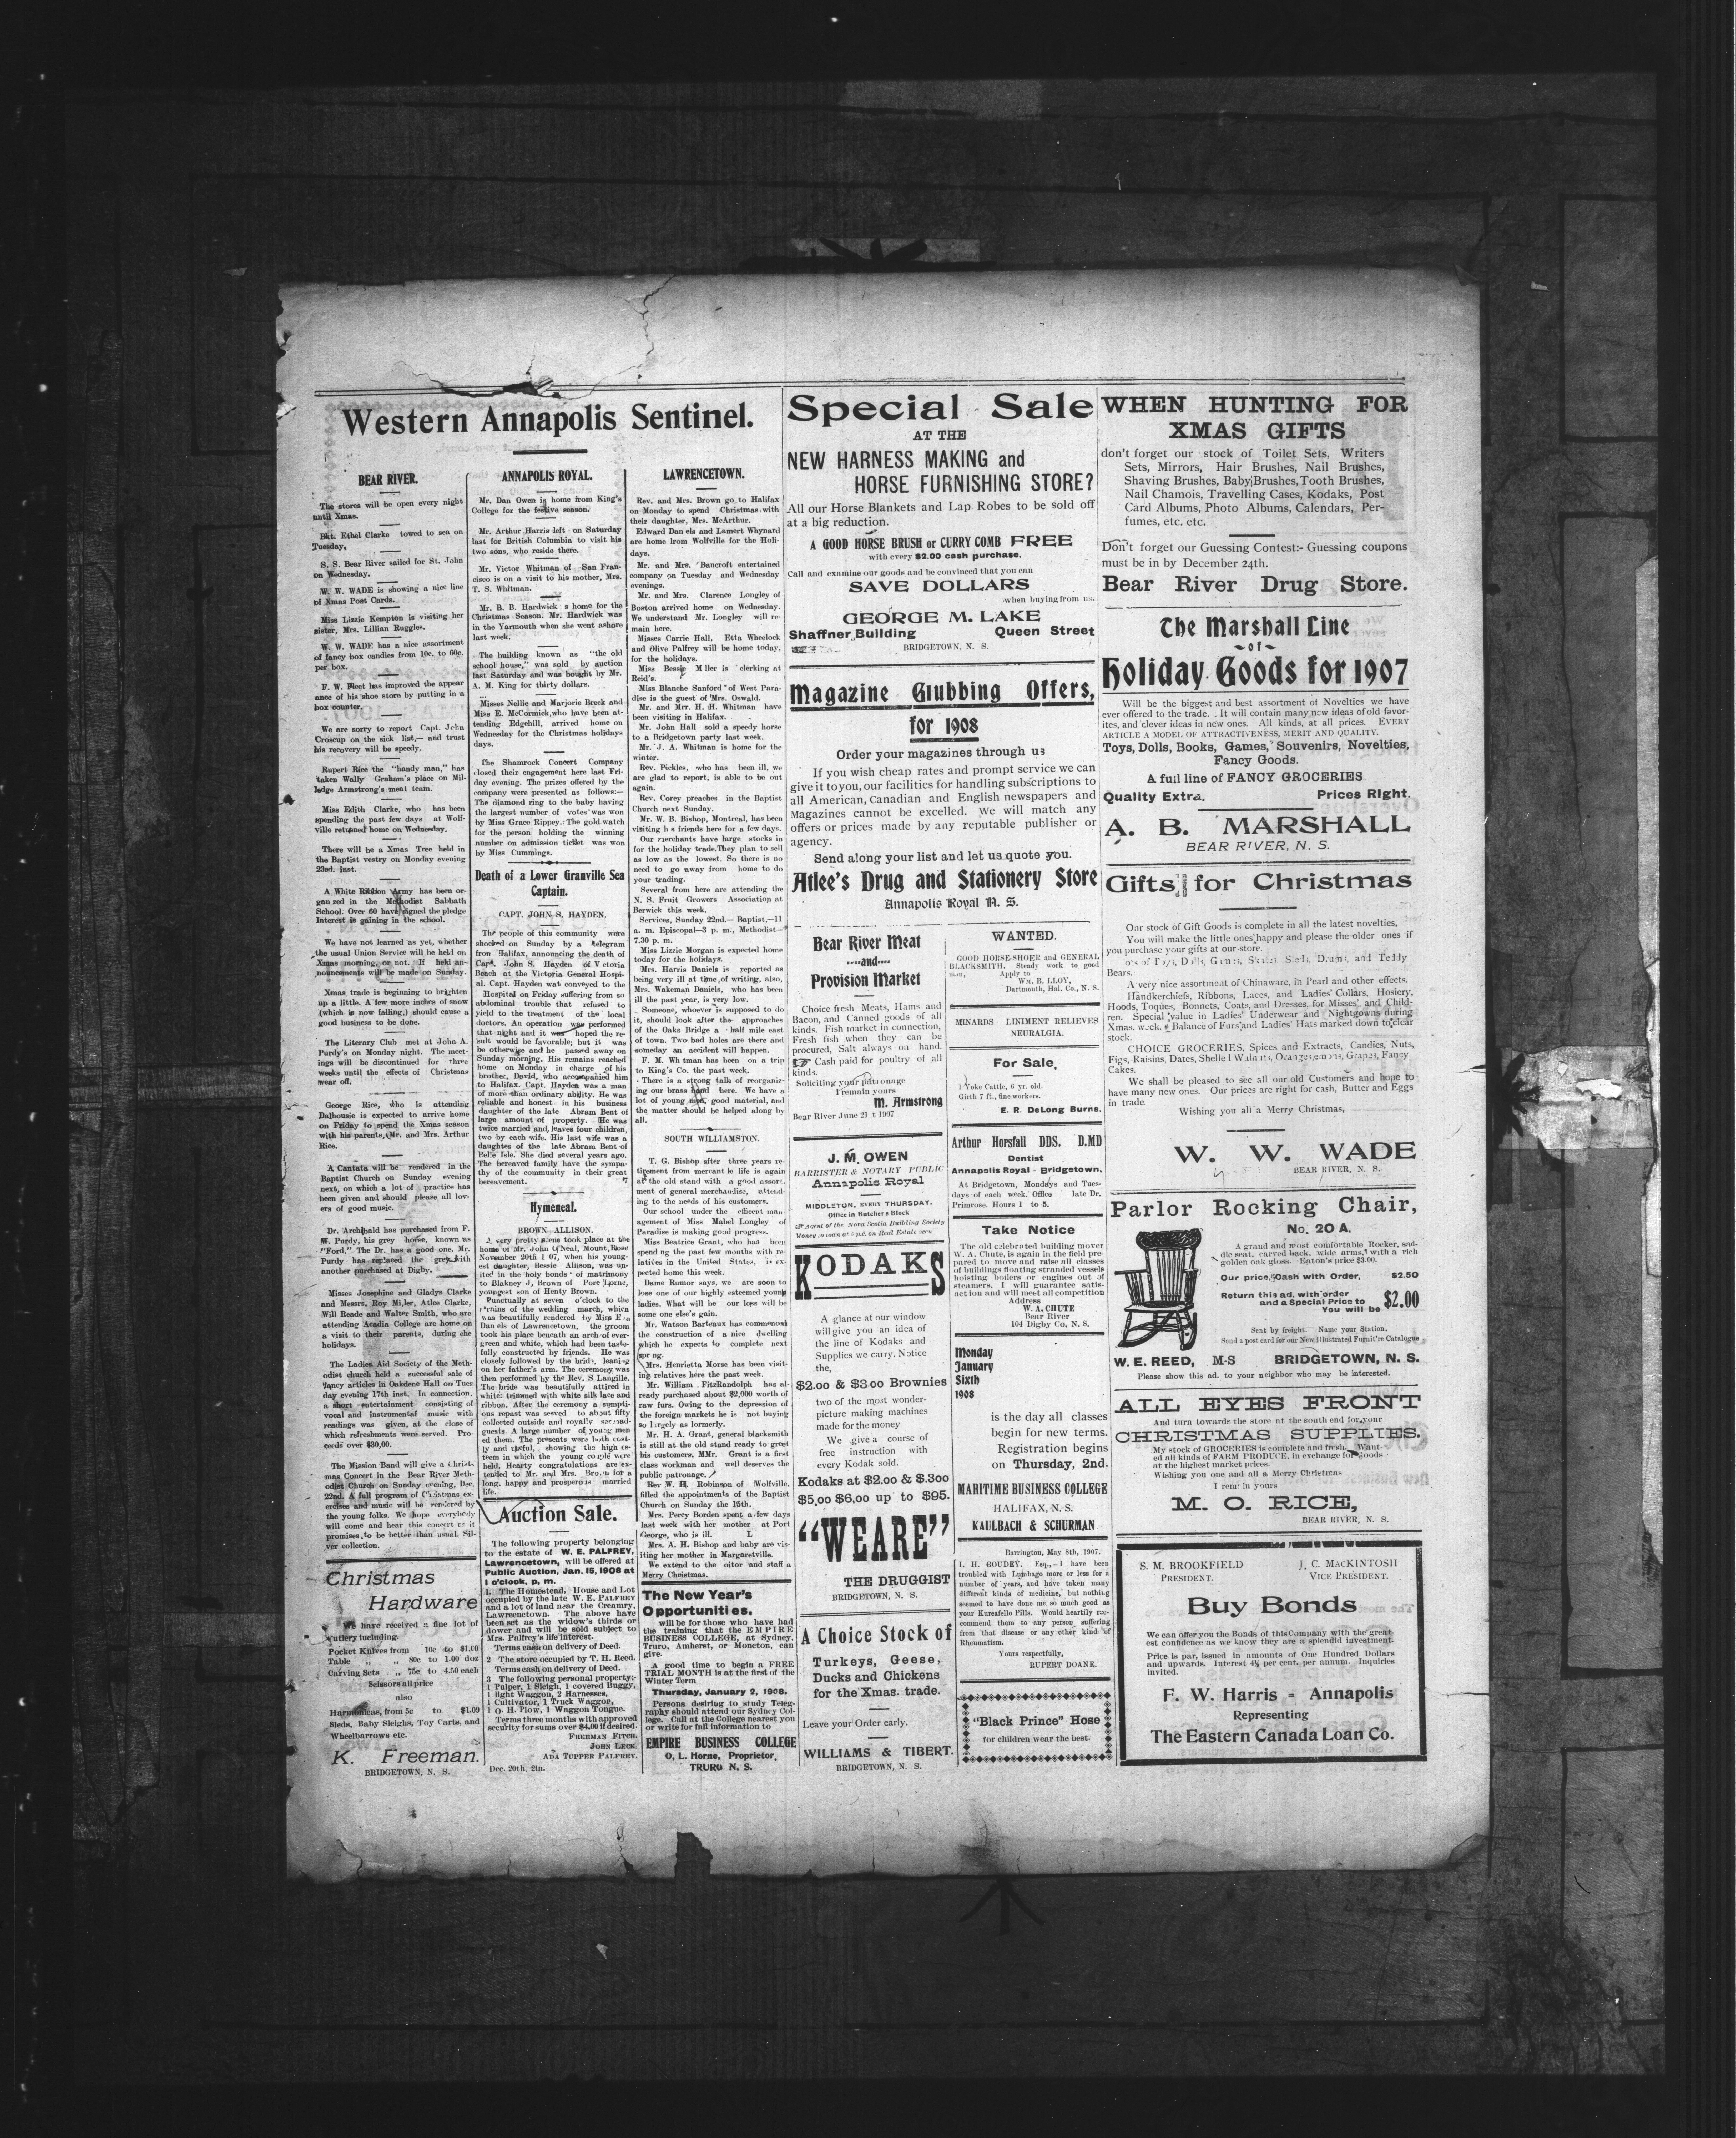 Western Annapolis Sentinel.
BEAR RIVER.
The stores will be open every night
until Xmas.
Bkt. Ethel Clarke towed to sea on
Tuesday.
S. S. Bear River sailed for St. John
on Wednesday.
W. W. WADE is showing a nice line
of Xmas Post Cards.
Miss Lizzie Kempton is visiting her
sister, Mrs. Lillian Ruggles.
W. W. WADE has a nice assortment
of fancy box candies from 10c. to 60c.
per box.
F. W. Fleet has improved the appear
ance of his shoe store by putting in a
box counter.
We are sorry to report Capt. John
Croscup on the sick list,— and trust
his recovery will be speedy.
Rupert Rice the "handy man," has
taken Wally Graham's place on Mil-
ledge Armstrong's meat team.
Miss Edith Clarke, who has been
spending the past few days at Wolf-
ville returned home on Wednesday.
There will be a Xmas Tree held in
the Baptist vestry on Monday evening
23rd. inst.
A White Ribbon Army has been or-
gan zed in the Methodist Sabbath
School. Over 60 have signed the pledge
Interest is gaining in the school.
We have not learned as yet, whether
the usual Union Service will be held on
Xmas morning, or not. If held an-
nouncements will be made on Sunday.
Xmas trade is beginning to brighten
up a little. A few more inches of snow
(which is now falling,) should cause a
good business to be done.
The Literary Club met at John A.
Purdy's on Monday night. The meet-
ings will be discontinued for three
weeks until the effects of Christmas
wear off.
George Rice, who is attending
Dalhousie is expected to arrive home
on Friday to spend the Xmas season
with his parents, Mr. and Mrs. Arthur
Rice.
A Cantata will be rendered in the
Baptist Church on Sunday evening
next, on which a lot of practice has
been given and should please all lov-
ers of good music.
Dr. Archibald has purchased from F.
W. Purdy, his grey horse, known as
"Ford." The Dr. has a good one. Mr.
Purdy has replaced the grey with
another purchased at Digby.
Misses Josephine and Gladys Clarke
and Messrs. Roy Miller, Atlee Clarke,
Will Reade and Walter Smith, who are
attending Acadia College are home on
a visit to their parents, during the
holidays.
The Ladies Aid Society of the Meth-
odist church held a successful sale of
fancy articles in Oakdene Hall on Tues
day evening 17th inst. In connection,
a short entertainment consisting of
vocal and instrumental music with
readings was given, at the close of
which refreshments were served. Pro-
ceeds over $30,00.
The Mission Band will give a Christ-
mas Concert in the Bear River Meth-
odist Church on Sunday evening, Dec.
22nd. A full program of Christmas ex-
ercises and music will be rendered by
the young folks. We hope everybody
will come and hear this concert as it
promises to be better than usual. Sil-
ver collection.
Christmas
Hardware
We have received a fine lot of
Cutlery including.
Pocket Knives from 10c to $1.00
Table „ „ 80c to 1.00 doz
Carving Sets „ 75c to 4.50 each
Scissors all price
also
Harmonicas, from 5c to $1.00
Sleds, Baby Sleighs, Toy Carts, and
Wheelbarrows etc.
K. Freeman.
BRIDGETOWN, N. S.
ANNAPOLIS ROYAL.
Mr. Dan Owen is home from King's
College for the festive season.
Mr. Arthur Harris left on Saturday
last for British Columbia to visit his
two sons, who reside there.
Mr. Victor Whitman of San Fran-
cisco is on a visit to his mother, Mrs.
T. S. Whitman.
Mr. B. B. Hardwick s home for the
Christmas Season. Mr. Hardwick was
in the Yarmouth when she went ashore
last week.
The building known as "the old
school house," was sold by auction
last Saturday and was bought by Mr.
A. M. King for thirty dollars.
Misses Nellie and Marjorie Breck and
Miss E. McCormick, who have been at-
tending Edgehill, arrived home on
Wednesday for the Christmas holidays
days.
The Shamrock Concert Company
closed their engagement here last Fri-
day evening. The prizes offered by the
company were presented as follows:—
The diamond ring to the baby having
the largest number of votes was won
by Miss Grace Rippey. The gold watch
for the person holding the winning
number on admission ticket was won
by Miss Cummings.
Death of a Lower Granville Sea
Captain.
CAPT. JOHN S. HAYDEN.
The people of this community were
shocked on Sunday by a telegram
from Halifax, announcing the death of
Capt. John S. Hayden of Victoria
Beach at the Victoria General Hospi-
al. Capt. Hayden was conveyed to the
Hospital on Friday suffering from so
abdominal trouble that refused to
yield to the treatment of the local
doctors. An operation was performed
that night and it was hoped the re-
sult would be favorable; but it was
be otherwise and he passed away on
Sunday morning. His remains reached
home on Monday in charge of his
brother, David, who accompanied him
to Halifax. Capt. Hayden was a man
of more than ordinary ability. He was
reliable and honest in his business
daughter of the late Abram Bent of
large amount of property. He was
twice married and leaves four children,
two by each wife. His last wife was a
daughtes of the late Abram Bent of
Belle Isle. She died several years ago.
The bereaved family have the sympa-
thy of the community in their great
bereavement.
Hymeneal.
BROWN—ALLISON.
A very pretty scene took place at the
home of Mr. John O'Neal, Mount Rose
November 20th 1 07, when his young-
est daughter, Bessie Allison, was un-
ited in the holy bonds of matrimony
to Blakney J, Brown of Pore Lorne,
youngest son of Henty Brown.
Punctually at seven o'clock to the
strains of the wedding march, which
was beautifully rendered by Miss
Daniels of Lawrencetown, the groom
took his place beneath an arch of ever-
green and white, which had been taste-
fully constructed by friends. He was
closely followed by the bride, leaning
on her father's arm. The ceremony was
then performed by the Rev. S Langille.
The bride was beautifully attired in
white trimmed with white silk lace and
ribbon. After the ceremony a sumpti-
ous repast was seved to about fifty
collected outside and royally
guests. A large number of young men
ed them. The presents were both cost-
ly and useful, showing the high es-
teem in which the young couple were
held. Hearty congratulations are ex-
tended to Mr. and Mrs. Brown for a
long, happy and prosperous married
life.
Auction Sale.
The following property belonging
to the estate of W. E. PALFREY,
Lawrencetown, will be offered at
Public Auction, Jan. 15, 1908 at
1 o'clock, p. m.
1. The Homestead, House and Lot
occupied by the late W. E. PALFREY
and a lot of land near the Creamry,
Lawreenctown. The above have
been set as the widow's thirds or
dower and will be sold subject to
Mrs. Palfrey's life interest.
Terms cash on delivery of Deed.
2 The store occupied by T. H. Reed.
Terms cash on delivery of Deed.
3 The following personal property:-
1 Pulper, 1 Sleigh, 1 covered Buggy,
1 light Waggon, 2 Harnesses,
1 Cultivator, 1 Truck Waggon,
1 O. H. Plow, 1 Waggon Tongue.
Terms three months with approved
security for sums over $4.00 if desired.
FREEMAN FITCH.
JOHN LECK.
ADA TUPPER PALFREY.
Dec. 20th, 2in.
LAWRENCETOWN.
Rev. and Mrs. Brown go to Halifax
on Monday to spend Christmas with
their daughter, Mrs. McArthur.
Edward Dan els and Lamert Whynard
are home lrom Wolfville for the Holi-
days.
Mr. and Mrs. Bancroft entertained
company on Tuesday and Wednesday
evenings.
Mr. and Mrs. Clarence Longley of
Boston arrived home on Wednesday.
We understand Mr. Longley will re-
main here.
Misses Carrie Hall, Etta Wheelock
and Olive Palfrey will be home today,
for the holidays.
Miss Bessie M ller is clerking at
Reid's.
Miss Blanche Sanford of West Para-
dise is the guest of Mrs. Oswald.
Mr. and Mrr. H. H. Whitman have
been visiting in Halifax.
Mr. John Hall sold a speedy horse
to a Bridgetown party last week.
Mr. J. A. Whitman is home for the
winter.
Rev. Pickles, who has been ill, we
are glad to report, is able to be out
again.
Rev. Corey preaches in the Baptist
Church next Sunday.
Mr. W. B. Bishop, Montreal, has been
visiting h s friends here for a few days.
Our merchants have large stocks in
for the holiday trade. They plan to sell
as low as the lowest. So there is no
need to go away from home to do
your trading.
Several from here are attending the
N. S. Fruit Growers Association at
Berwick this week.
Services, Sunday 22nd.— Baptist,—11
a. m. Episcopal—3 p. m., Methodist—
7.30 p. m.
Miss Lizzie Morgan is expected home
today for the holidays.
Mrs. Harris Daniels is reported as
being very ill at time of writing, also,
Mrs. Wakeman Daniels, who has been
ill the past year, is very low.
Someone, whoever is supposed to do
it, should look after the approaches
of the Oaks Bridge a half mile east
of town. Two bad holes are there and
someday an accident will happen.
F. M. Wh tman has been on a trip
to King's Co. the past week.
There is a strong talk of reorganiz-
ing our brass band here. We have a
lot of young men, good material, and
the matter should be helped along by
all.
SOUTH WILLIAMSTON.
T. G. Bishop sfter three years re-
tirement from mercant le life is again
at the old stand with a good assort-
ment of general merchandise, attend-
ing to the needs of his customers.
Our school under the efficent man-
agement of Miss Mabel Longley of
Paradise is making good progress.
Miss Beatrice Grant, who has been
spend ng the past few months with re-
latives in the United States, is ex-
pected home this week.
Dame Rumor says, we are soon to
lose one of our highly esteemed young
ladies. What will be our loss will be
some one else's gain.
Mr. Watson Barteaux has commenced
the construction of a nice dwelling
which he expects to complete next
spr ng.
Mrs. Henrietta Morse has been visit-
ing relatives here the past week.
Mr. William FitzRandolph has al-
ready purchased about $2,000 worth of
raw furs. Owing to the depression of
the foreign markets he is not buying
so largely as lormerly.
Mr. H. A. Grant, general blacksmith
is still at the old stand ready to greet
his customers, MMr. Grant is a first
class workman and well deserves the
public patronage.
Rev W. H. Robinson of Wolfville,
filled the appointments of the Baptist
Church on Sunday the 15th.
Mrs. Percy Borden spent a few days
last week with her mother at Port
George, who is ill.
Mrs. A. H. Bishop and baby are vis-
iting her mother in Margaretville.
We extend to the editor and staff a
Merry Christmas.
The New Year's
Opportunities,
will be for those who have had
the training that the EMPIRE
BUSINESS COLLEGE, at Sydney,
Truro, Amherst, or Moncton, can
give.
A good time to begin a FREE
TRIAL MONTH is at the first of the
Winter Term
Thursday, January 2, 1908.
Persons desiring to study Teleg-
raphy should attend our Sydney Col-
lege. Call at the College nearest you
or write for full information to
EMPIRE BUSINESS COLLEGE
O, L. Horne, Proprietor,
TRURO N. S.
Special Sale
AT THE
NEW HARNESS MAKING and
HORSE FURNISHING STORE?
All our Horse Blankets and Lap Robes to be sold off
at a big reduction.
A GOOD HORSE BRUSH or CURRY COMB FREE
with every $2.00 cash purchase.
Call and examine our goods and be convinced that you can
SAVE DOLLARS
when buying from us.
GEORGE M. LAKE
Shaffner Building Queen Street
BRIDGETOWN, N. S.
Magazine Clubbing Offers,
for 1908
Order your magazines through us
If you wish cheap rates and prompt service we can
give it to you, our facilities for handling subscriptions to
all American, Canadian and English newspapers and
Magazines cannot be excelled. We will match any
offers or prices made by any reputable publisher or
agency.
Send along your list and let us quote you.
Atlee's Drug and Stationery Store
Annapolis Royal N. S.
Bear River Meat
----and----
Provision Market
Choice fresh Meats, Hams and
Bacon, and Canned goods of all
kinds. Fish market in connection,
Fresh fish when they can be
procured, Salt always on hand.
Cash paid for poultry of all
kinds.
Soliciting your patronage
I remain yours
M. Armstrong
Bear River June 21 t 1907
J. M. OWEN
BARRISTER & NOTARY PUBLIC
Annapolis Royal
MIDDLETON, EVERY THURSDAY.
Office in Butcher's Block
Agent of the Nova Scotia Building Society
Money to loan at 5 p.c. on Real Estate secu
KODAKS
A glance at our window
will give you an idea of
the line of Kodaks and
Supplies we carry. Notice
the,
$2.00 & $3.00 Brownies
two of the most wonder-
picture making machines
made for the money
We give a course of
free instruction with
every Kodak sold.
Kodaks at $2.00 & $.300
$5,00 $6,00 up to $95.
"WEARE"
THE DRUGGIST
BRIDGETOWN, N. S.
A Choice Stock of
Turkeys, Geese,
Ducks and Chickens
for the Xmas. trade.
Leave your Order early.
WILLIAMS & TIBERT.
BRIDGETOWN, N. S.
WANTED.
GOOD HORSE-SHOER and GENERAL
BLACKSMITH. Steady work to good
man, Apply to
WM. B. LLOY,
Dartmouth, Hal. Co., N. S.
MINARDS LINIMENT RELIEVES
NEURALGIA.
For Sale,
1 Yoke Cattle, 6 yr. old.
Girth 7 ft., fine workers.
E. R. DeLong Burns.
Arthur Horsfall DDS. D.MD
Dentist
Annapolis Royal - Bridgetown,
At Bridgetown, Mondays and Tues-
days of each week. Office late Dr.
Primrose. Hours 1 to 5.
Take Notice
The old celebrated building mover
W. A. Chute, is again in the field pre-
pared to move and raise all classes
of buildings floating stranded vessels
hoisting boilers or engines out of
steamers. I will guarantee satis-
action and will meet all competition
Address
W. A. CHUTE
Bear River
104 Digby Co, N. S.
Monday
January
Sixth
1908
is the day all classes
begin for new terms.
Registration begins
on Thursday, 2nd.
MARITIME BUSINESS COLLEGE
HALIFAX, N. S.
KAULBACH & SCHURMAN
Barrington, May 8th, 1907.
I. H. GOUDEY. Esq.,—I have been
troubled with Lumbago more or less for a
number of years, and have taken many
different kinds of medicine, but nothing
seemed to have done me so much good as
your Kureafelle Pills. Would heartily rec-
commend them to any person suffering
from that disease or any other kind of
Rheumatism.
Yours respectfully,
RUPERT DOANE.
"Black Prince" Hose
for children wear the best.
WHEN HUNTING FOR
XMAS GIFTS
don't forget our stock of Toilet Sets, Writers
Sets, Mirrors, Hair Brushes, Nail Brushes,
Shaving Brushes, Baby Brushes, Tooth Brushes,
Nail Chamois, Travelling Cases, Kodaks, Post
Card Albums, Photo Albums, Calendars, Per-
fumes, etc. etc.
Don't forget our Guessing Contest:- Guessing coupons
must be in by December 24th.
Bear River Drug Store.
The Marshall Line
~of~
Holiday Goods for 1907
Will be the biggest and best assortment of Novelties we have
ever offered to the trade. It will contain many new ideas of old favor-
ites, and clever ideas in new ones. All kinds, at all prices. EVERY
ARTICLE A MODEL OF ATTRACTIVENESS, MERIT AND QUALITY.
Toys, Dolls, Books, Games, Souvenirs, Novelties,
Fancy Goods.
A full line of FANCY GROCERIES
Quality Extra. Prices Right.
A. B. MARSHALL
BEAR RIVER, N. S.
Gifts for Christmas
Our stock of Gift Goods is complete in all the latest novelties,
You will make the little ones happy and please the older ones if
you purchase your gifts at our store.
of Toys, Dolls, Games, Sleds, Drums, and Teddy
Bears.
A very nice assortment of Chinaware, in Pearl and other effects.
Handkerchiefs, Ribbons, Laces, and Ladies' Collars, Hosiery,
Hoods, Toques, Bonnets, Coats, and Dresses, for Misses' and Child-
ren. Special value in Ladies' Underwear and Nightgowns during
Xmas. week. Balance of Furs and Ladies' Hats marked down to clear
stock.
CHOICE GROCERIES, Spices and Extracts, Candies, Nuts,
Figs, Raisins, Dates, Shelled Walnuts, Oranges, emons, Grapes, Fancy
Cakes.
We shall be pleased to see all our old Customers and hope to
have many new ones. Our prices are right for cash, Butter and Eggs
in trade.
Wishing you all a Merry Christmas,
W. W. WADE
BEAR RIVER, N. S.
Parlor Rocking Chair,
No. 20 A.
A grand and most comfortable Rocker, sad-
dle seat, carved back, wide arms, with a rich
golden oak gloss. Eaton's price $3.00.
Our price, Cash with Order, $2.50
Return this ad. with order
and a Special Price to
You will be $2.00
Sent by freight. Name your Station.
Send a post card for our New Illustrated Furnit're Catalogue
W. E. REED, M-S BRIDGETOWN, N. S.
Please show this ad. to your neighbor who may be interested.
ALL EYES FRONT
And turn towards the store at the south end for your
CHRISTMAS SUPPLIES.
My stock of GROCERIES is complete and fresh. Want-
ed all kinds of FARM PRODUCE, in exchange for Goods
at the highest market prices.
Wishing you one and all a Merry Christmas
I remain yours
M. O. RICE,
BEAR RIVER, N. S.
S. M. BROOKFIELD J. C. MACKINTOSH
PRESIDENT. VICE PRESIDENT.
Buy Bonds
We can offer you the Bonds of this Company with the great-
est confidence as we know they are a splendid investment.
Price is par, issued in amounts of One Hundred Dollars
and upwards. Interest 4½ per cent. per annum. Inquiries
invited.
F. W. Harris - Annapolis
Representing
The Eastern Canada Loan Co.